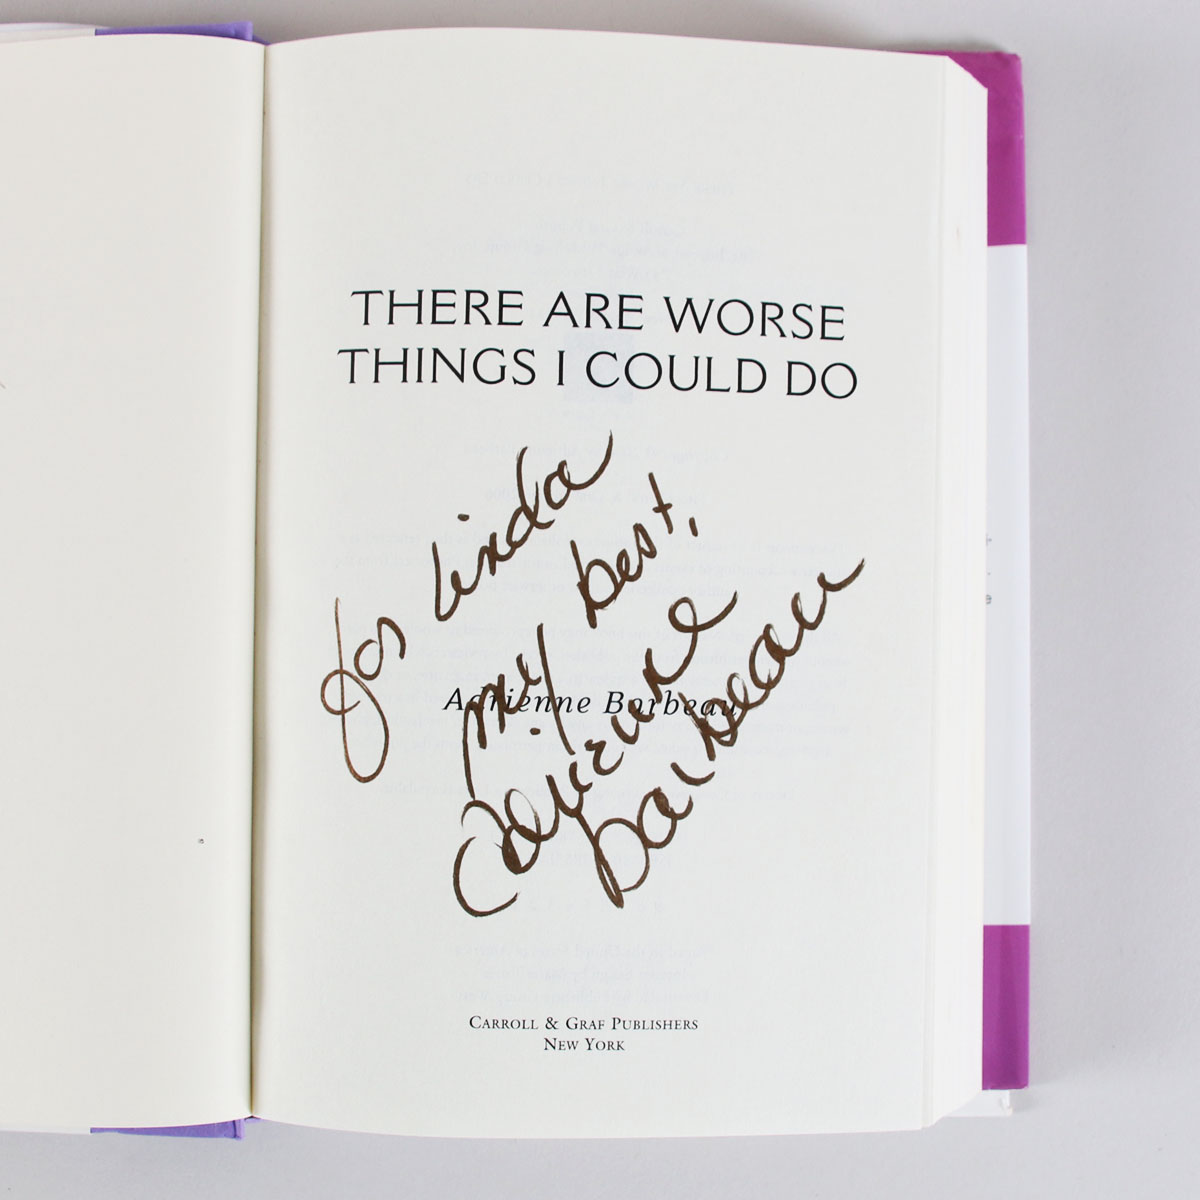 THERE ARE WORSE
THINGS I COULD DO
for Linda
my best,
Adrienne
Barbeau
Adrienne Barbeau
CARROLL & GRAF PUBLISHERS
NEW YORK